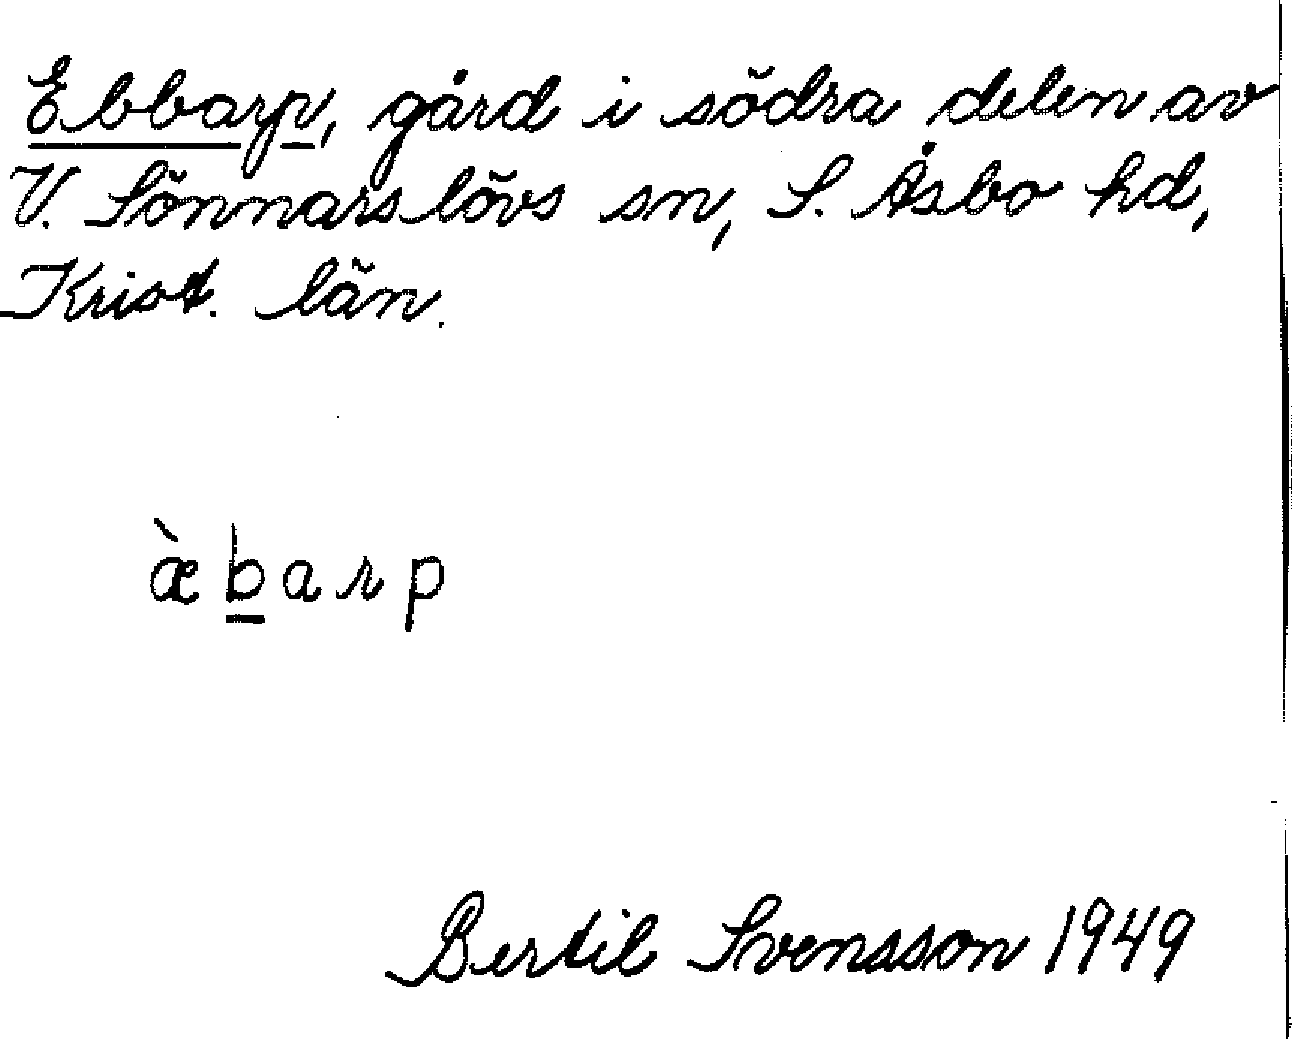 Ebbarp, gård i södra delen av
V. Sönnarslövs sn, S. Åsbo hd,
Krist. län.
æ̀b̲arp
Bertil Svensson 1949